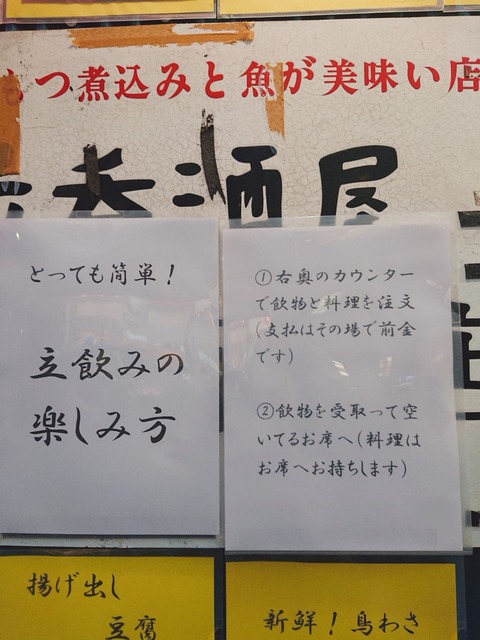 もつ煮込みと魚が美味い店
呑酒屋
とっても簡単！
立飲みの
楽しみ方
①右奥のカウンター
で飲物と料理を注文
(支払はその場で前金
です)
②飲物を受取って空
いてるお席へ(料理は
お席へお持ちします)
揚げ出し
豆腐
新鮮！鳥わさ